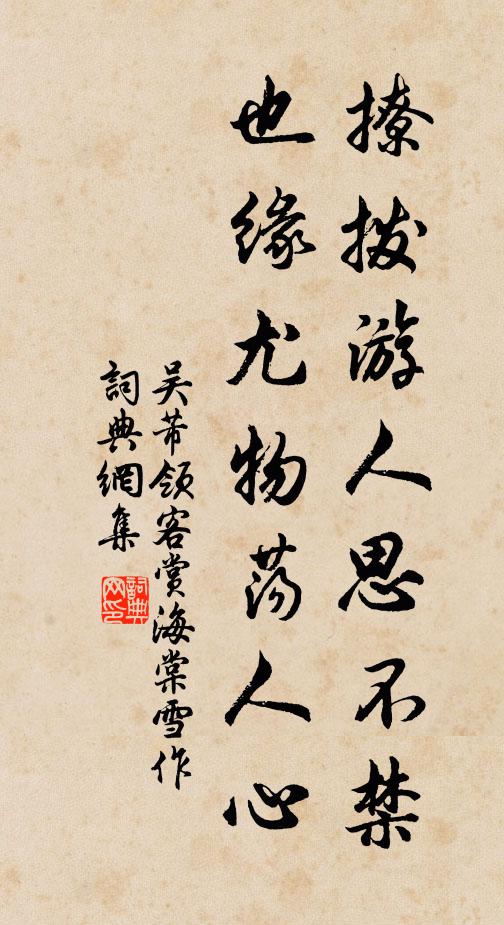 撩拨游人思不禁
也缘尤物荡人心
吴芾领客赏海棠雪作
詞典網集
詞典网印